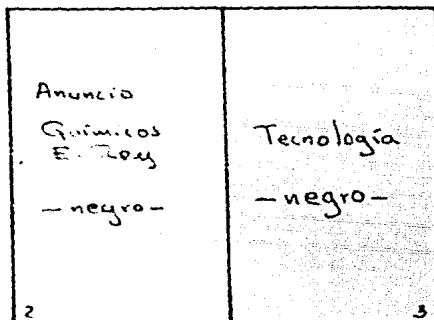 Anuncio
Químicos
E. Rey
— negro —
2
Tecnología
— negro —
3